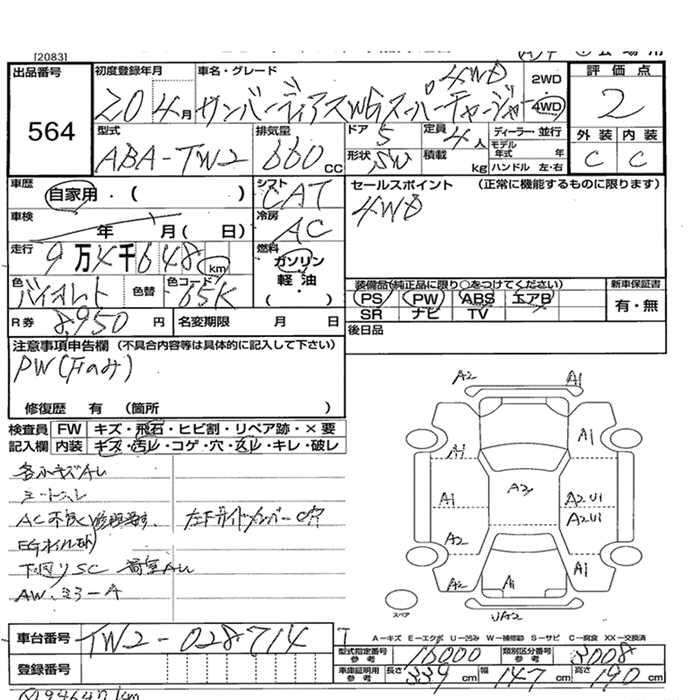 [2083]
出品番号 564
初度登録年月 20 4月
車名・グレード サンバーディアスWGスーパーチャージャー 4WD
2WD 4WD
評価点 2
外装 内装
C C
型式 ABA-TW2
排気量 660 CC
ドア 5 定員 4人
形状 SW 積載 kg
ディーラー・並行
モデル年式 年
ハンドル 左・右
車歴 自家用・( )
車検 年 月( 日)
走行 9万4千648 km
色 バイオレット 色替 色コード 65K
R券 8,950円 名変期限 月 日
シフト CAT
冷房 AC
燃料 ガソリン 軽油 ( ・ )
セールスポイント (正常に機能するものに限ります)
4WD
装備品(純正品に限り○をつけてください) 新車保証書
PS PW ABS エアB 有・無
SR ナビ TV
後日品
注意事項申告欄 (不具合内容等は具体的に記入して下さい)
PW(Fのみ)
修復歴 有 (箇所 )
検査員記入欄 FW キズ・飛石・ヒビ割・リペア跡・×要
内装 キズ・汚レ・コゲ・穴・スレ・キレ・破レ
各小キズAU
下廻りSC
AW・ミラーA
左F サイドメンバー
A2 A1
A1 A1
A1 A2 A2U1
A2 A2U1
A2 A1 A1
UA2
スペア
A-キズ E-エクボ U-凹み W-補修跡 S-サビ C-腐食 XX-交換済
車台番号 TW2-028714
登録番号
型式指定番号 参考 15000 類別区分番号 参考 3008
車庫証明用 参考 長さ 339 cm 幅 147 cm 高さ 190 cm